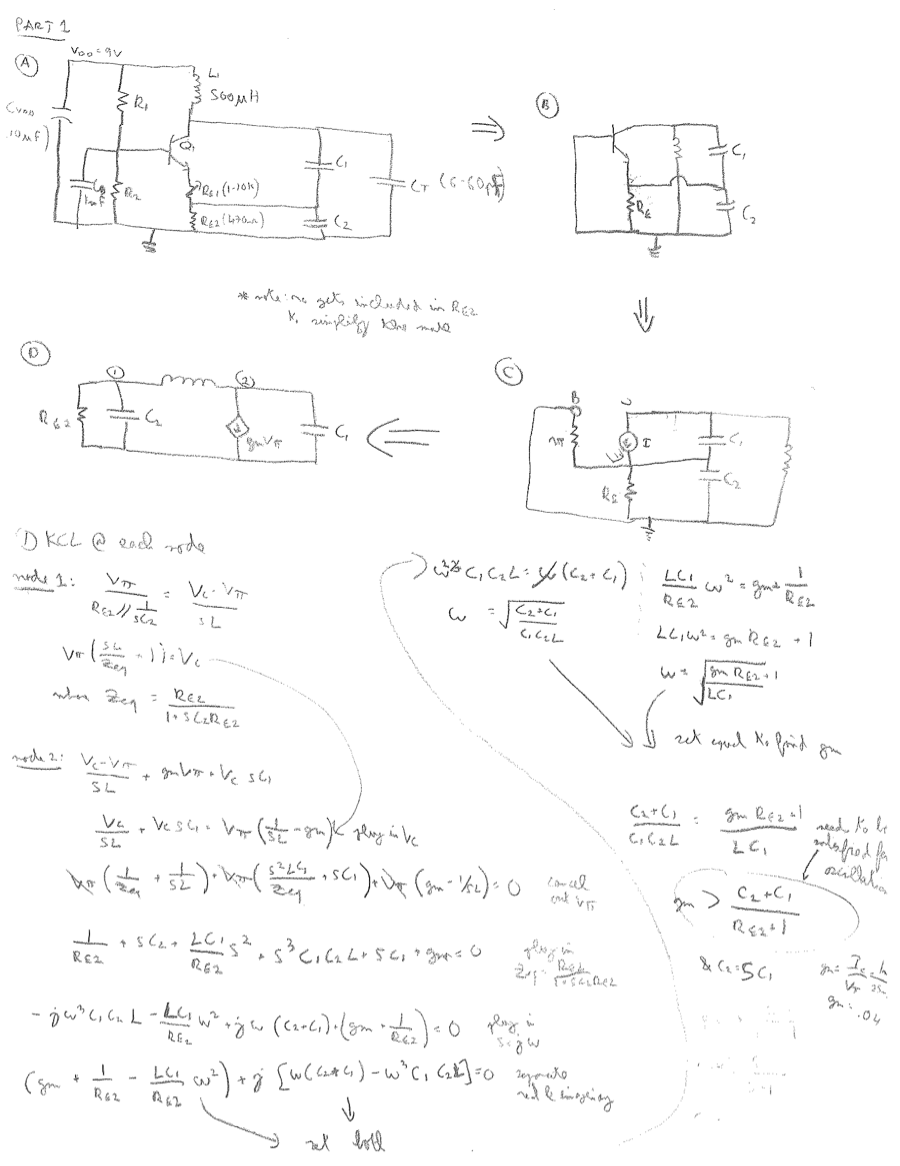 PART 1
A
VDD = 9V
L1
500µH
R1
CVDD
10µF)
Q1
CB
1nF
R2
RE1 (1-10k)
RE2 (470Ω)
C1
C2
CT (6-60pF)
B
C1
RE
C2
* note: re gets included in RE2
to simplify the math
D
1
2
RE2
C2
gmVπ
C1
C
B
C
rπ
I
C1
RE
C2
1) KCL @ each node
node 1: Vπ / (RE2 // 1/sC2) = (Vc - Vπ) / sL
Vπ (sL/Zeq + 1) = Vc
where Zeq = RE2 / (1 + sC2RE2)
node 2: (Vc - Vπ)/sL + gmVπ + Vc sC1
Vc/sL + Vc sC1 = Vπ (1/sL - gm) plug in Vc
Vπ (1/Zeq + 1/sL) + Vπ (s²LC1/Zeq + sC1) + Vπ (gm - 1/sL) = 0 cancel
out Vπ
1/RE2 + sC2 + LC1/RE2 s² + s³ C1C2L + sC1 + gm = 0 plug in
Zeq = RE2/(1+sC2RE2)
- jω³C1C2L - LC1/RE2 ω² + jω (C2+C1) + (gm + 1/RE2) = 0 plug in
s = jω
(gm + 1/RE2 - LC1/RE2 ω²) + j [ω(C2+C1) - ω³C1C2L] = 0 separate
real & imaginary
set both
ω³ C1C2L = ω (C2+C1)
ω = √((C2+C1)/(C1C2L))
LC1/RE2 ω² = gm + 1/RE2
LC1ω² = gm RE2 + 1
ω = √((gm RE2 + 1)/LC1)
set equal to find gm
(C2+C1)/(C1C2L) = (gm RE2 + 1)/LC1
need to be
satisfied for
oscillation
gm > (C2+C1)/(RE2+1)
& C2 = 5C1
gm = .04